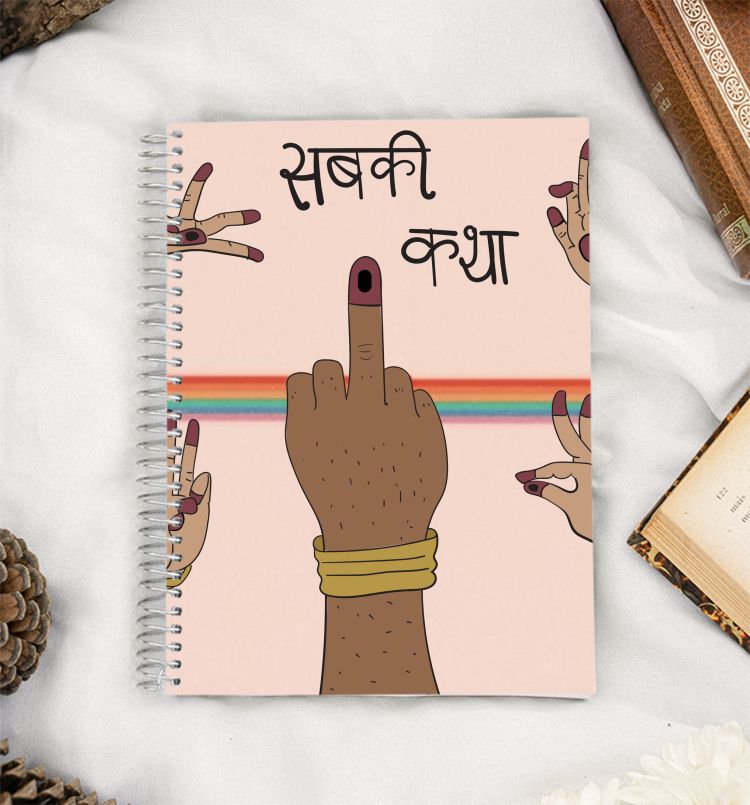 सबकी
कथा